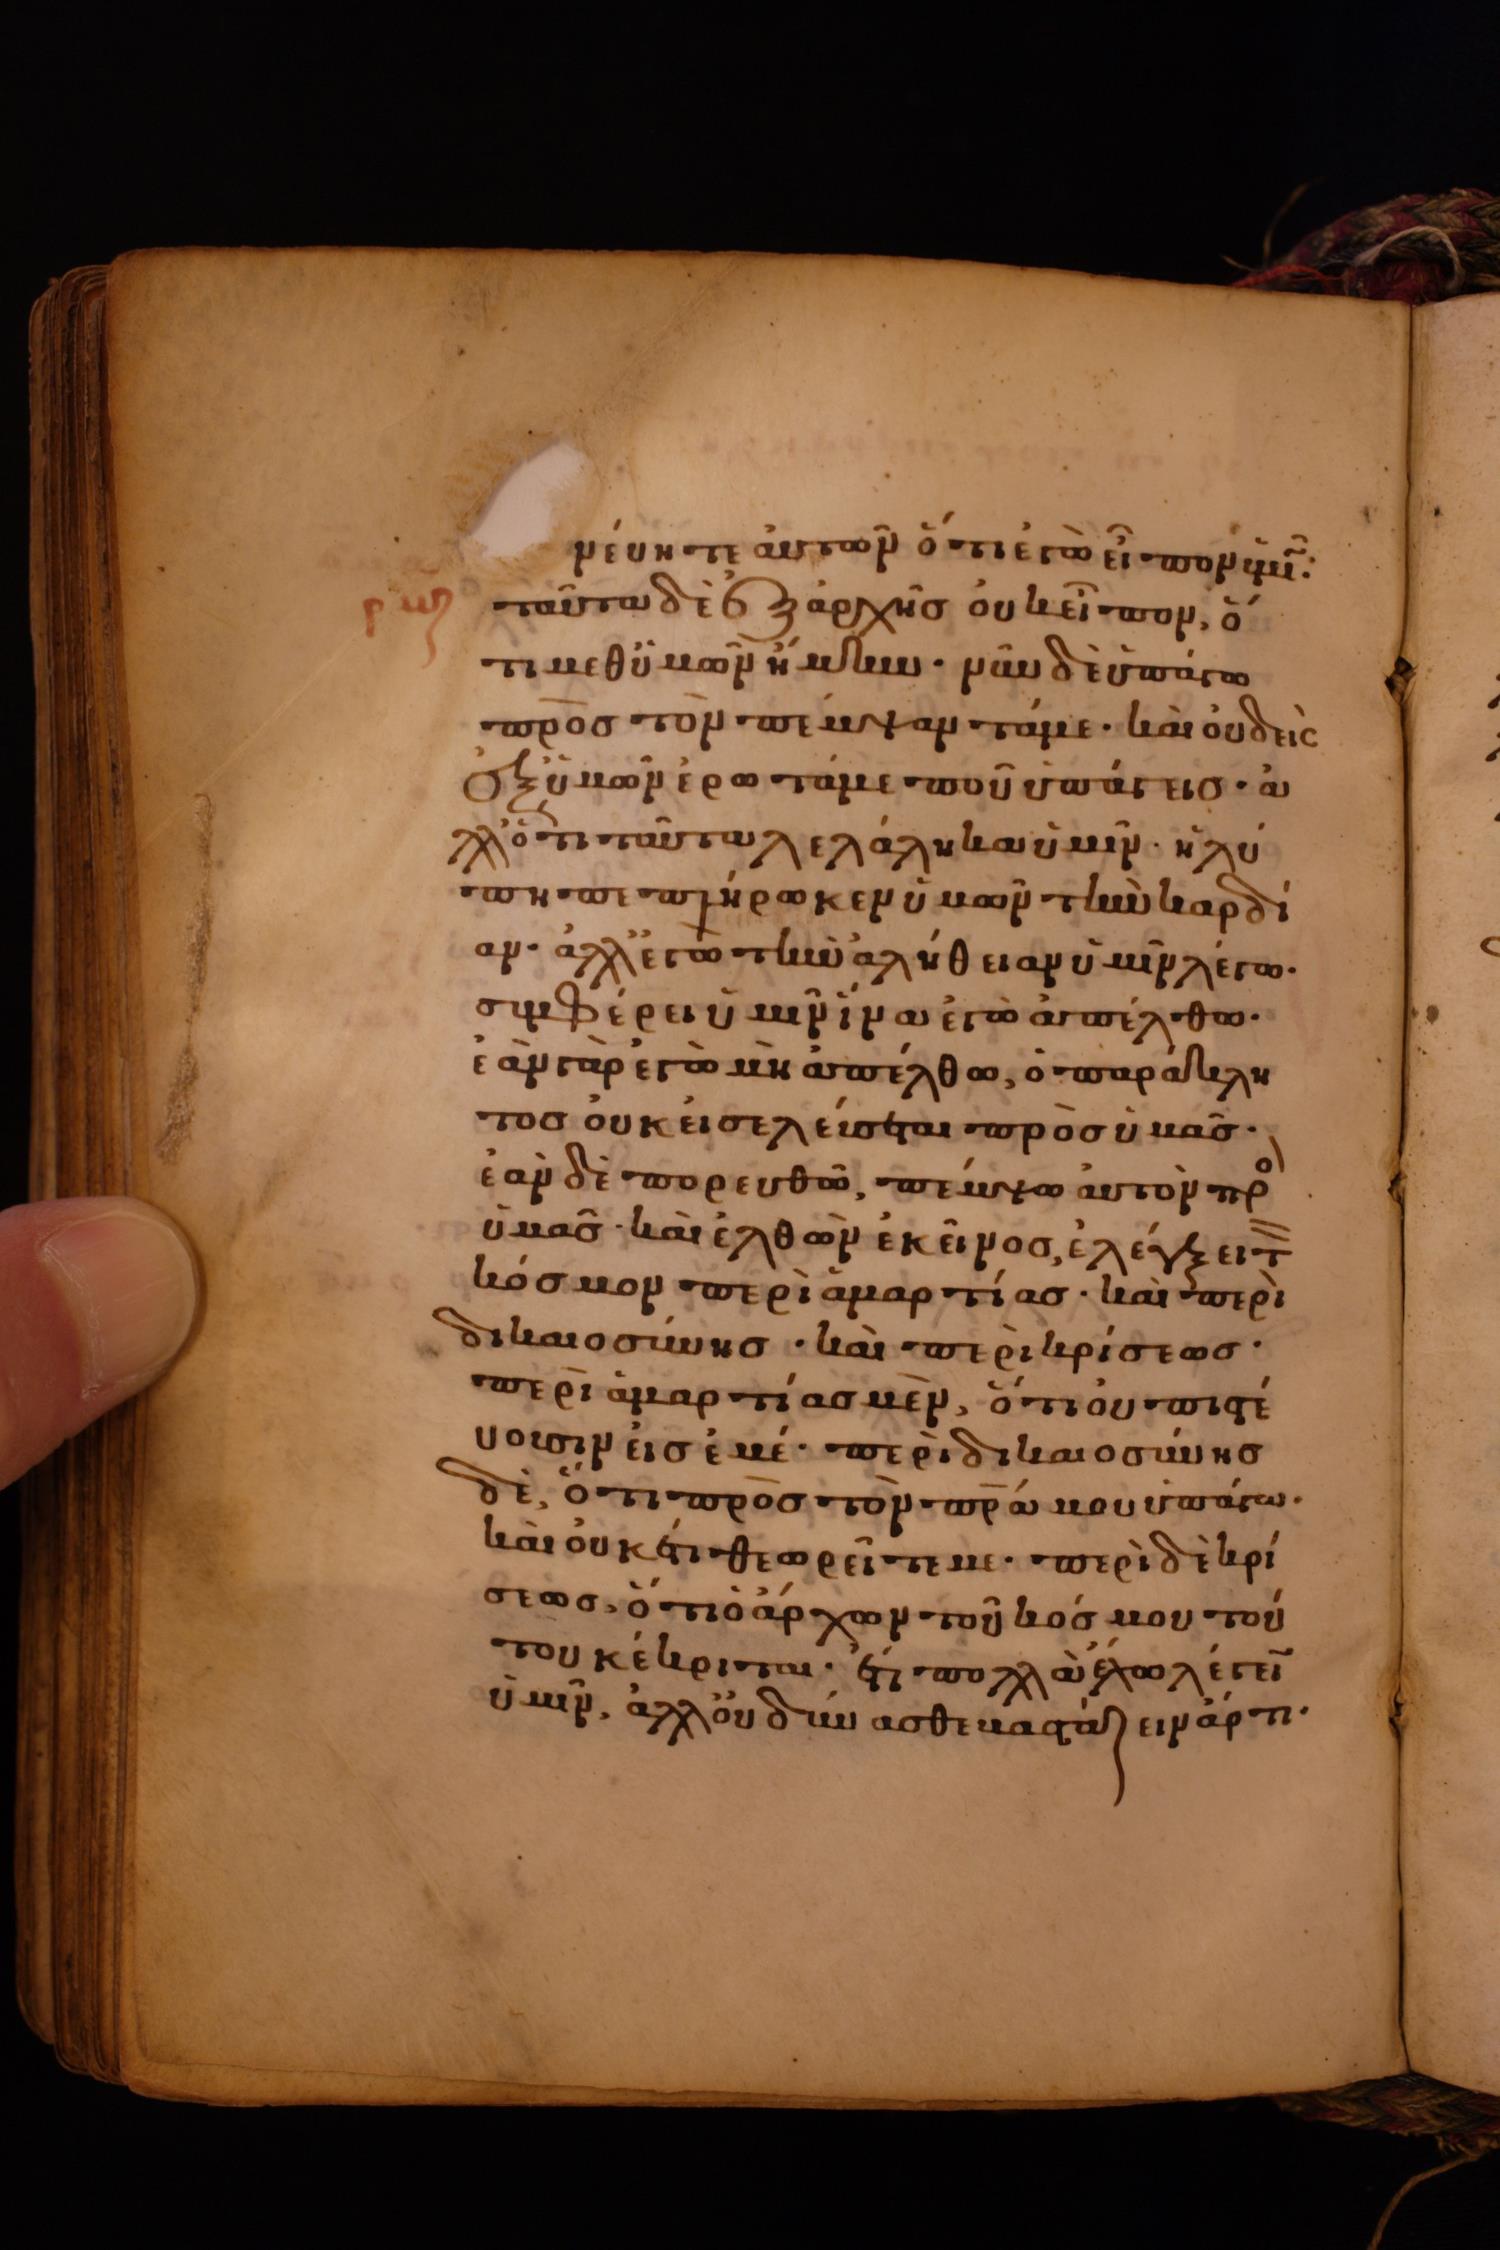 μέυητε ἀυτῶν ὅτι ἐγὼ εἶπον ὑμῖν:
ταῦτα δὲ ἐξ ἀρχῆσ ὀυκ εἶπον, ὅ
τι μεθ ὑμῶν ἤμην· νῦν δὲ ὑπάγω
πρὸσ τὸν πέμψαντά με· καὶ ὀυδεὶς
ἐξ ὑμῶν ἐρωτά με ποῦ ὑπάγεισ· ἀ
λλ ὅτι ταῦτα λελάληκα ὑμῖν· ἡ λύ
πη πεπλήρωκεν ὑμῶν τὴν καρδί
αν· ἀλλ ἐγὼ τὴν ἀλήθειαν ὑμῖν λέγω·
συμφέρει ὑμῖν ἵνα ἐγὼ ἀπέλθω·
ἐὰν γὰρ ἐγὼ μὴ ἀπέλθω, ὁ παράκλη
τοσ ὀυκ ἐισελεύσεται πρὸσ ὑμᾶσ·
ἐὰν δὲ πορευθῶ, πέμψω ἀυτὸν πρὸ
ὑμᾶσ· καὶ ἐλθὼν ἐκεῖνοσ, ἐλέγξει τ
κόσμον περὶ ἁμαρτίασ· καὶ περὶ
δικαιοσύνησ· καὶ περὶ κρίσεωσ·
περὶ ἁμαρτίασ μὲν, ὅτι ὀυ πιστέ
υουσιν ἐισ ἐμέ· περὶ δικαιοσύνησ
δὲ, ὅτι πρὸσ τὸν πρά μου ὑπάγω·
καὶ ὀυκ έτι θεωρεῖτε με· περὶ δὲ κρί
σεωσ, ὅτι ὁ ἀρχων τοῦ κόσμου τού
του κέκριται· ἔτι πολλὰ ἔχω λέγειν
ὑμῖν, ἀλλ ὀυ δύνασθε βαστάζειν ἄρτι·